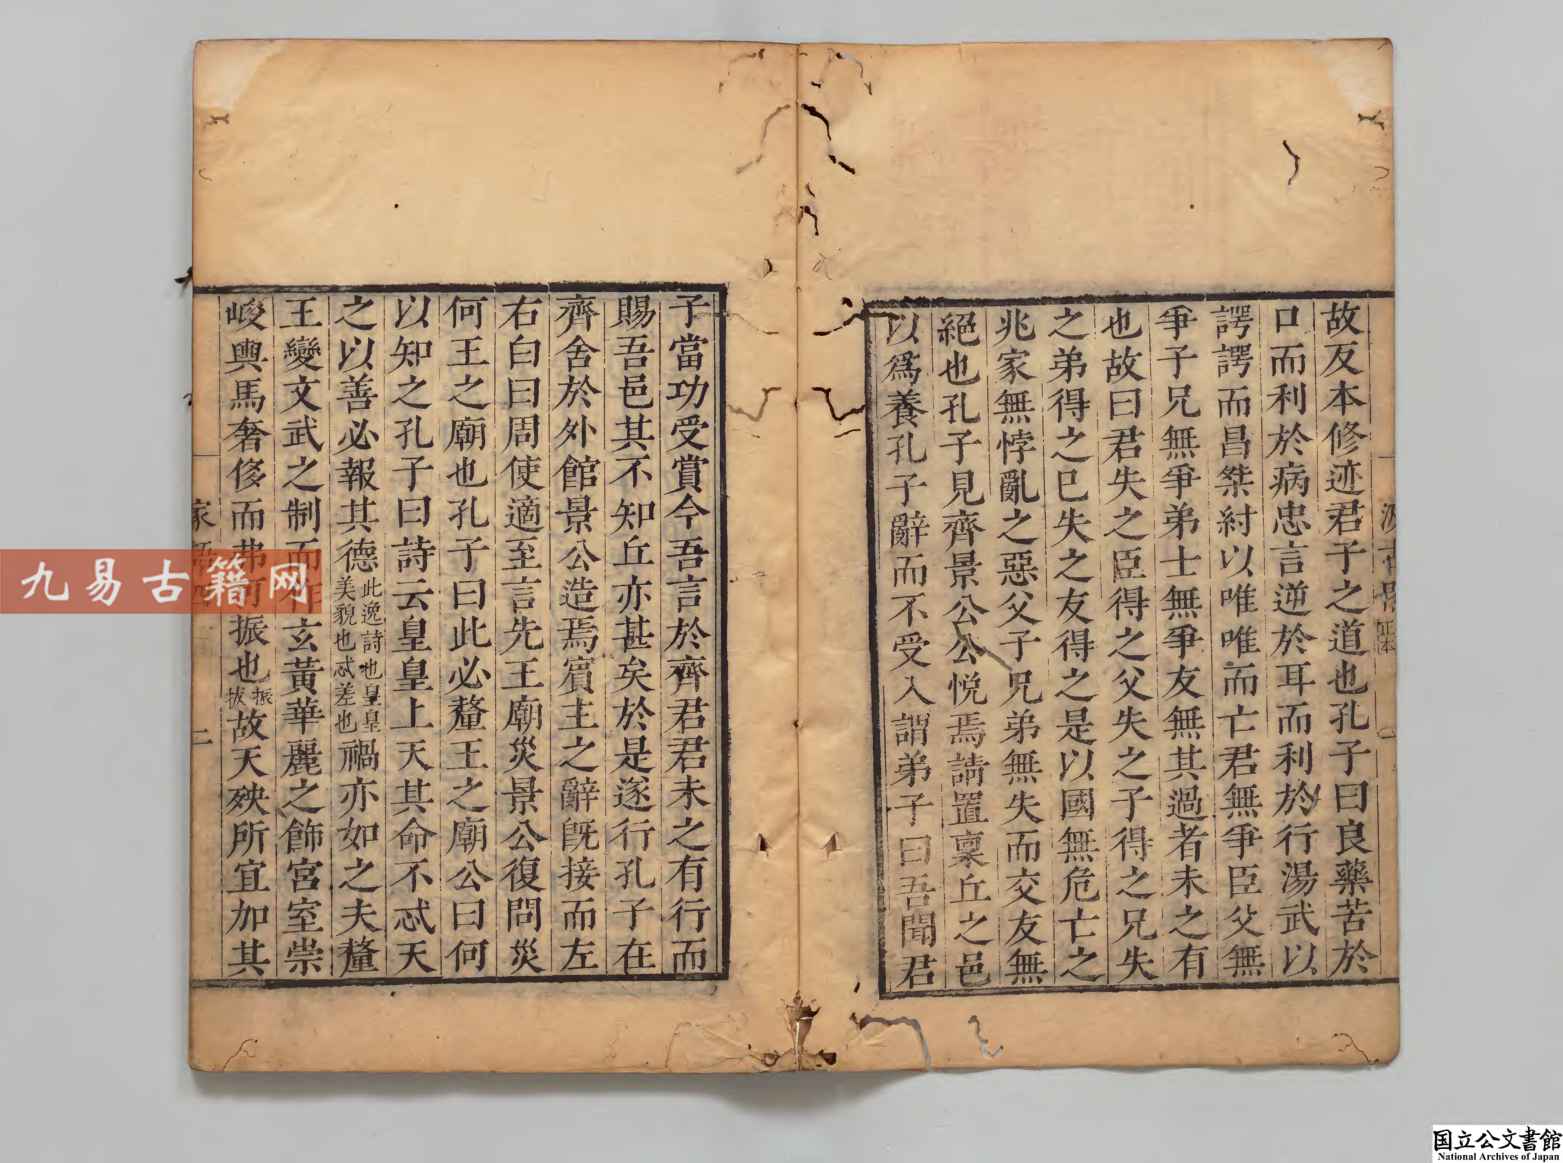 故反本修迹君子之道也孔子曰良藥苦於
口而利於病忠言逆於耳而利於行湯武以
諤諤而昌桀紂以唯唯而亡君無爭臣父無
爭子兄無爭弟士無爭友無其過者未之有
也故曰君失之臣得之父失之子得之兄失
之弟得之已失之友得之是以國無危亡之
兆家無悖亂之惡父子兄弟無失而交友無
絕也孔子見齊景公公悅焉請置稟丘之邑
以爲養孔子辭而不受入謂弟子曰吾聞君
子當功受賞今吾言於齊君君未之有行而
賜吾邑其不知丘亦甚矣於是遂行孔子在
齊舍於外館景公造焉賓主之辭既接而左
右白曰周使適至言先王廟災景公復問災
何王之廟也孔子曰此必釐王之廟公曰何
以知之孔子曰詩云皇皇上天其命不忒天
之以善必報其德此逸詩也皇皇美貌也忒差也禍亦如之夫釐
王變文武之制而作玄黃華麗之飾宮室崇
峻輿馬奢侈而弗可振也振拔故天殃所宜加其
家
二
九易古籍网
国立公文書館
National Archives of Japan